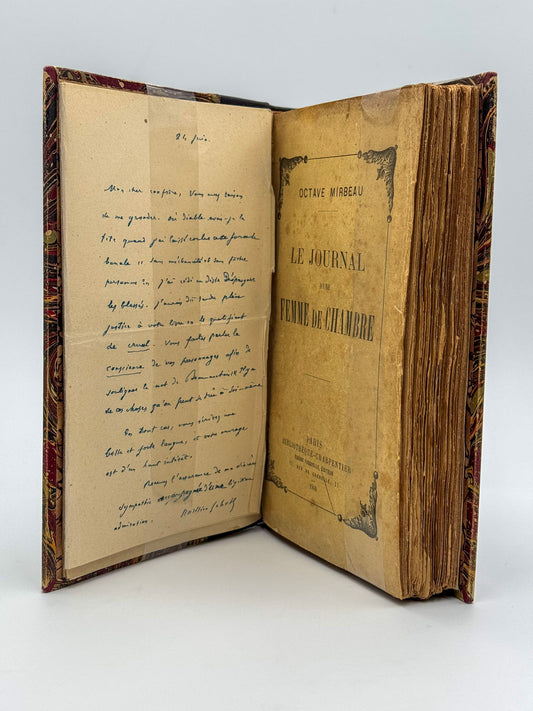 24 juin.
Mon cher confrère, vous avez raison
de me gronder. Où diable avais-je la
tête quand j'ai laissé couler cette formule
banale et sans méchanceté et sans
personne
les blessés. J'aurais dû rendre pleine
justice à votre livre en le qualifiant
de cruel. Vous faites parler la
conscience de vos personnages afin de
souligner le mot de Beaumarchais: Il y a
de ces choses qu'on peut dire à soi-même
En tout cas, vous écrivez une
belle et forte langue, et votre ouvrage
est d'un haut intérêt.
Recevez l'assurance de ma sincère
sympathie accompagnée d'une
admiration.
OCTAVE MIRBEAU
LE JOURNAL
D'UNE
FEMME DE CHAMBRE
PARIS
BIBLIOTHÈQUE-CHARPENTIER
EUGÈNE FASQUELLE, ÉDITEUR
11, RUE DE GRENELLE, 11